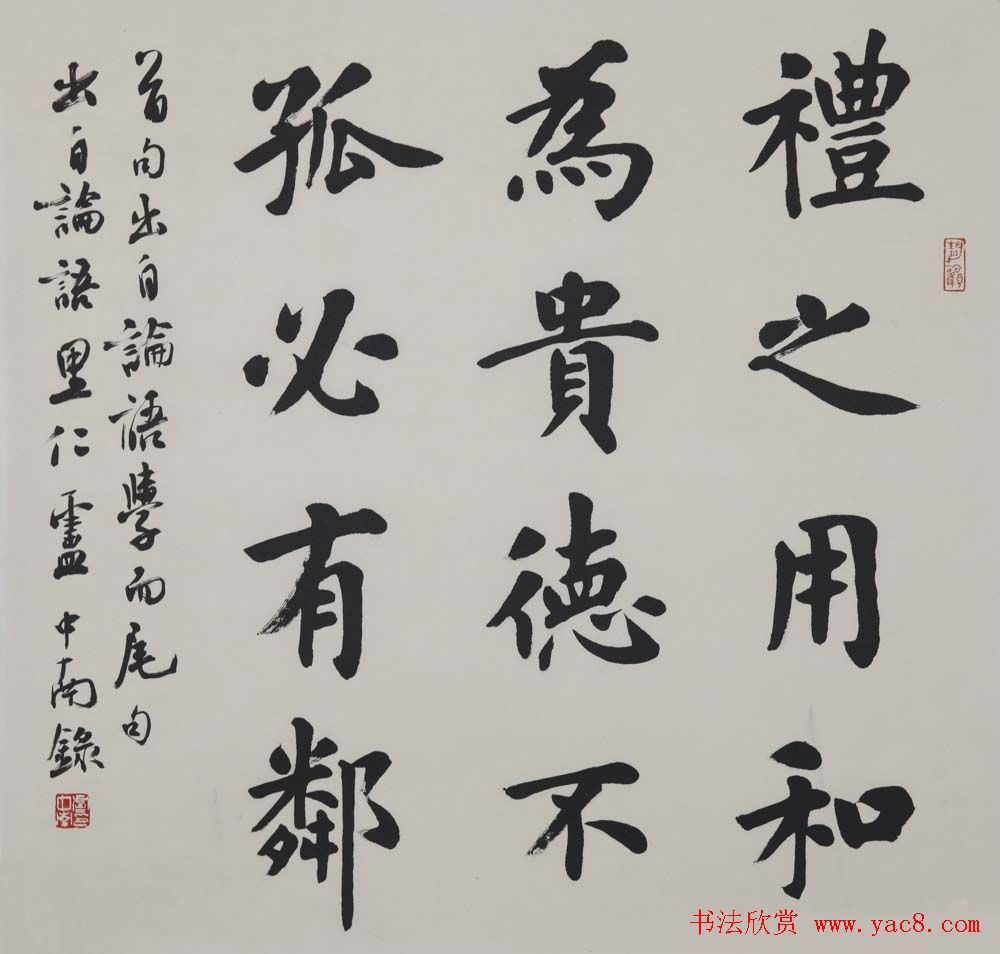 禮之用和
為貴德不
孤必有鄰
首句出自論語學而尾句
出自論語里仁盧中南錄
书法欣赏 www.yac8.com